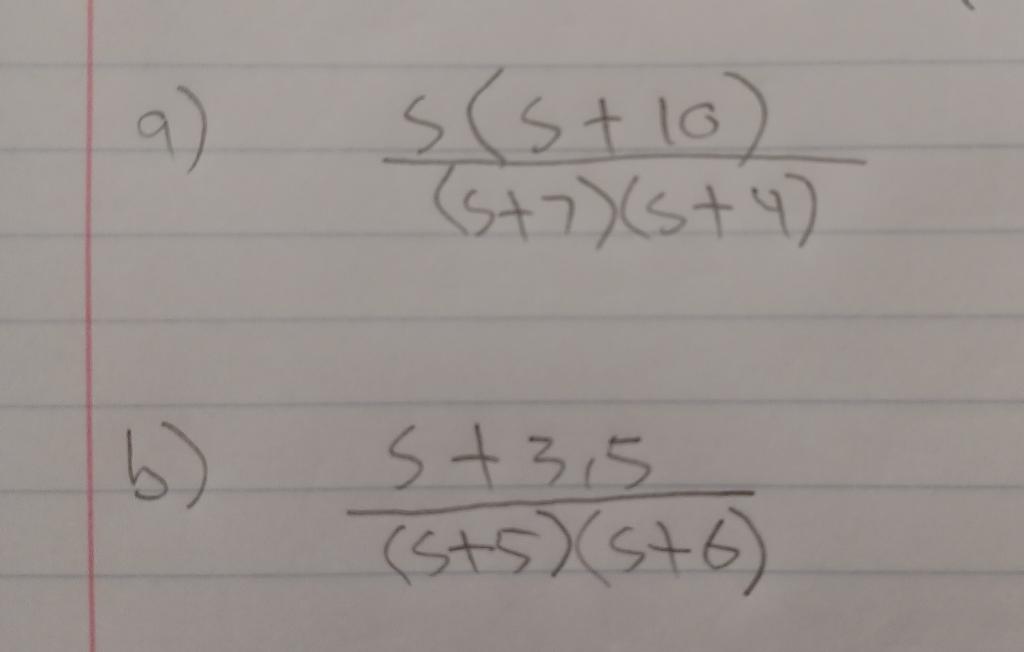 a) s(s+10)
(s+7)(s+4)
b) s+3,5
(s+5)(s+6)